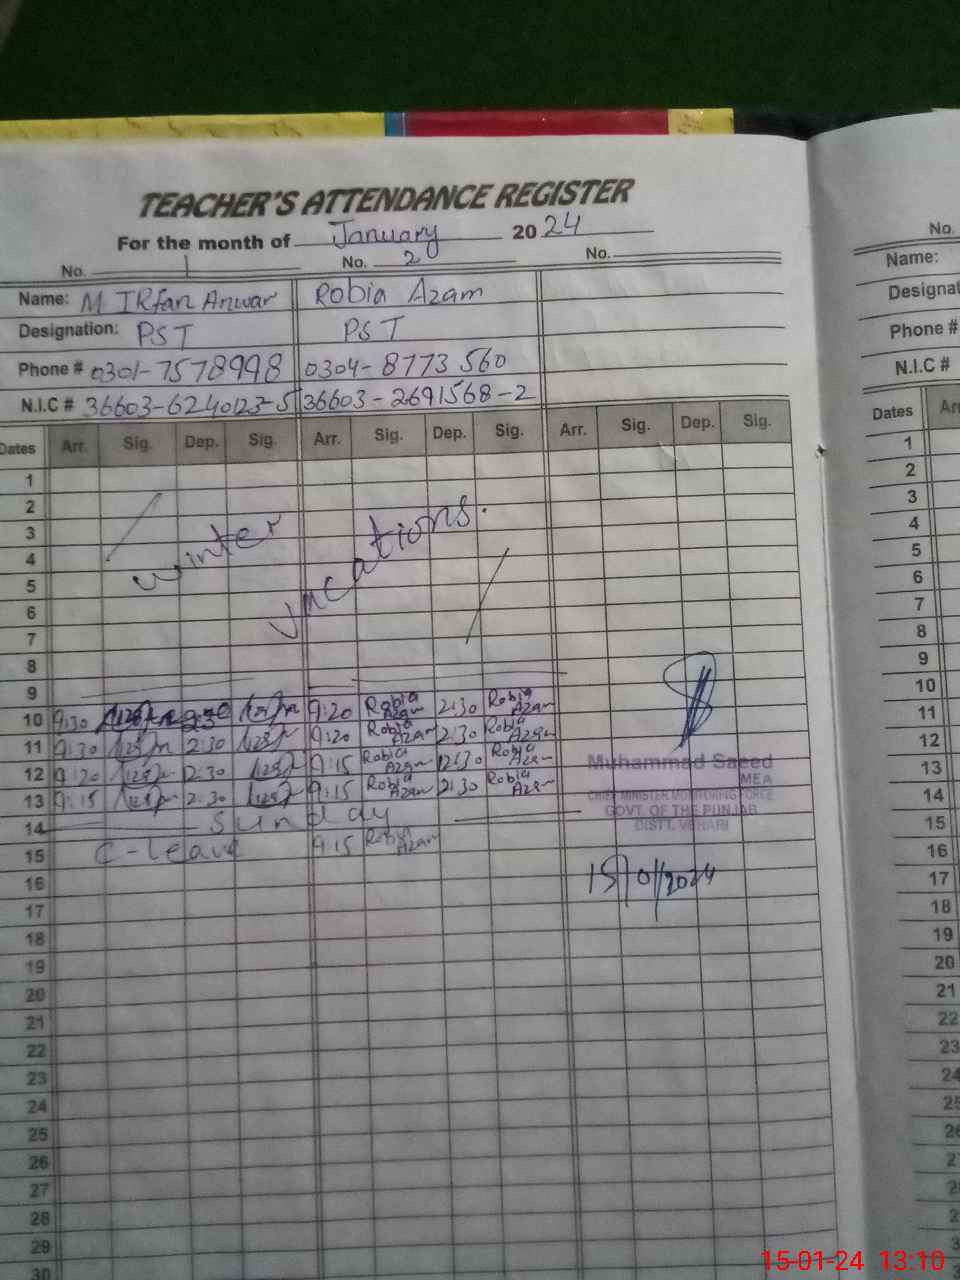 TEACHER'S ATTENDANCE REGISTER
For the month of January 2024
No. 1 No. 2 No.
Name: M IRfan Anwar Robia Azam
Designation: PST PST
Phone # 0301-7578998 0304-8773560
N.I.C # 36603-6240123-5 36603-2691568-2
Dates Arr. Sig. Dep. Sig. Arr. Sig. Dep. Sig. Arr. Sig. Dep. Sig.
1
2
3
4
5
6
7
8
9
winter vacations.
10 9:30 2:30 9:20 Robia Azam 2:30 Robia Azam
11 9:30 2:30 9:20 Robia Azam 2:30 Robia Azam
12 9:20 2:30 9:15 Robia Azam 2:30 Robia Azam
13 9:15 2:30 9:15 Robia Azam 2:30 Robia Azam
14 Sunday
15 C-leave 9:15 Robia Azam
16
17
18
19
20
21
22
23
24
25
26
27
28
29
30
Muhammad Saeed
MEA
CHIEF MINISTER MONITORING FORCE
GOVT. OF THE PUNJAB
DISTT. VEHARI
15/01/2024
No.
Name:
Designat
Phone #
N.I.C #
Dates Arr
1
2
3
4
5
6
7
8
9
10
11
12
13
14
15
16
17
18
19
20
21
22
23
24
25
26
15-01-24 13:10